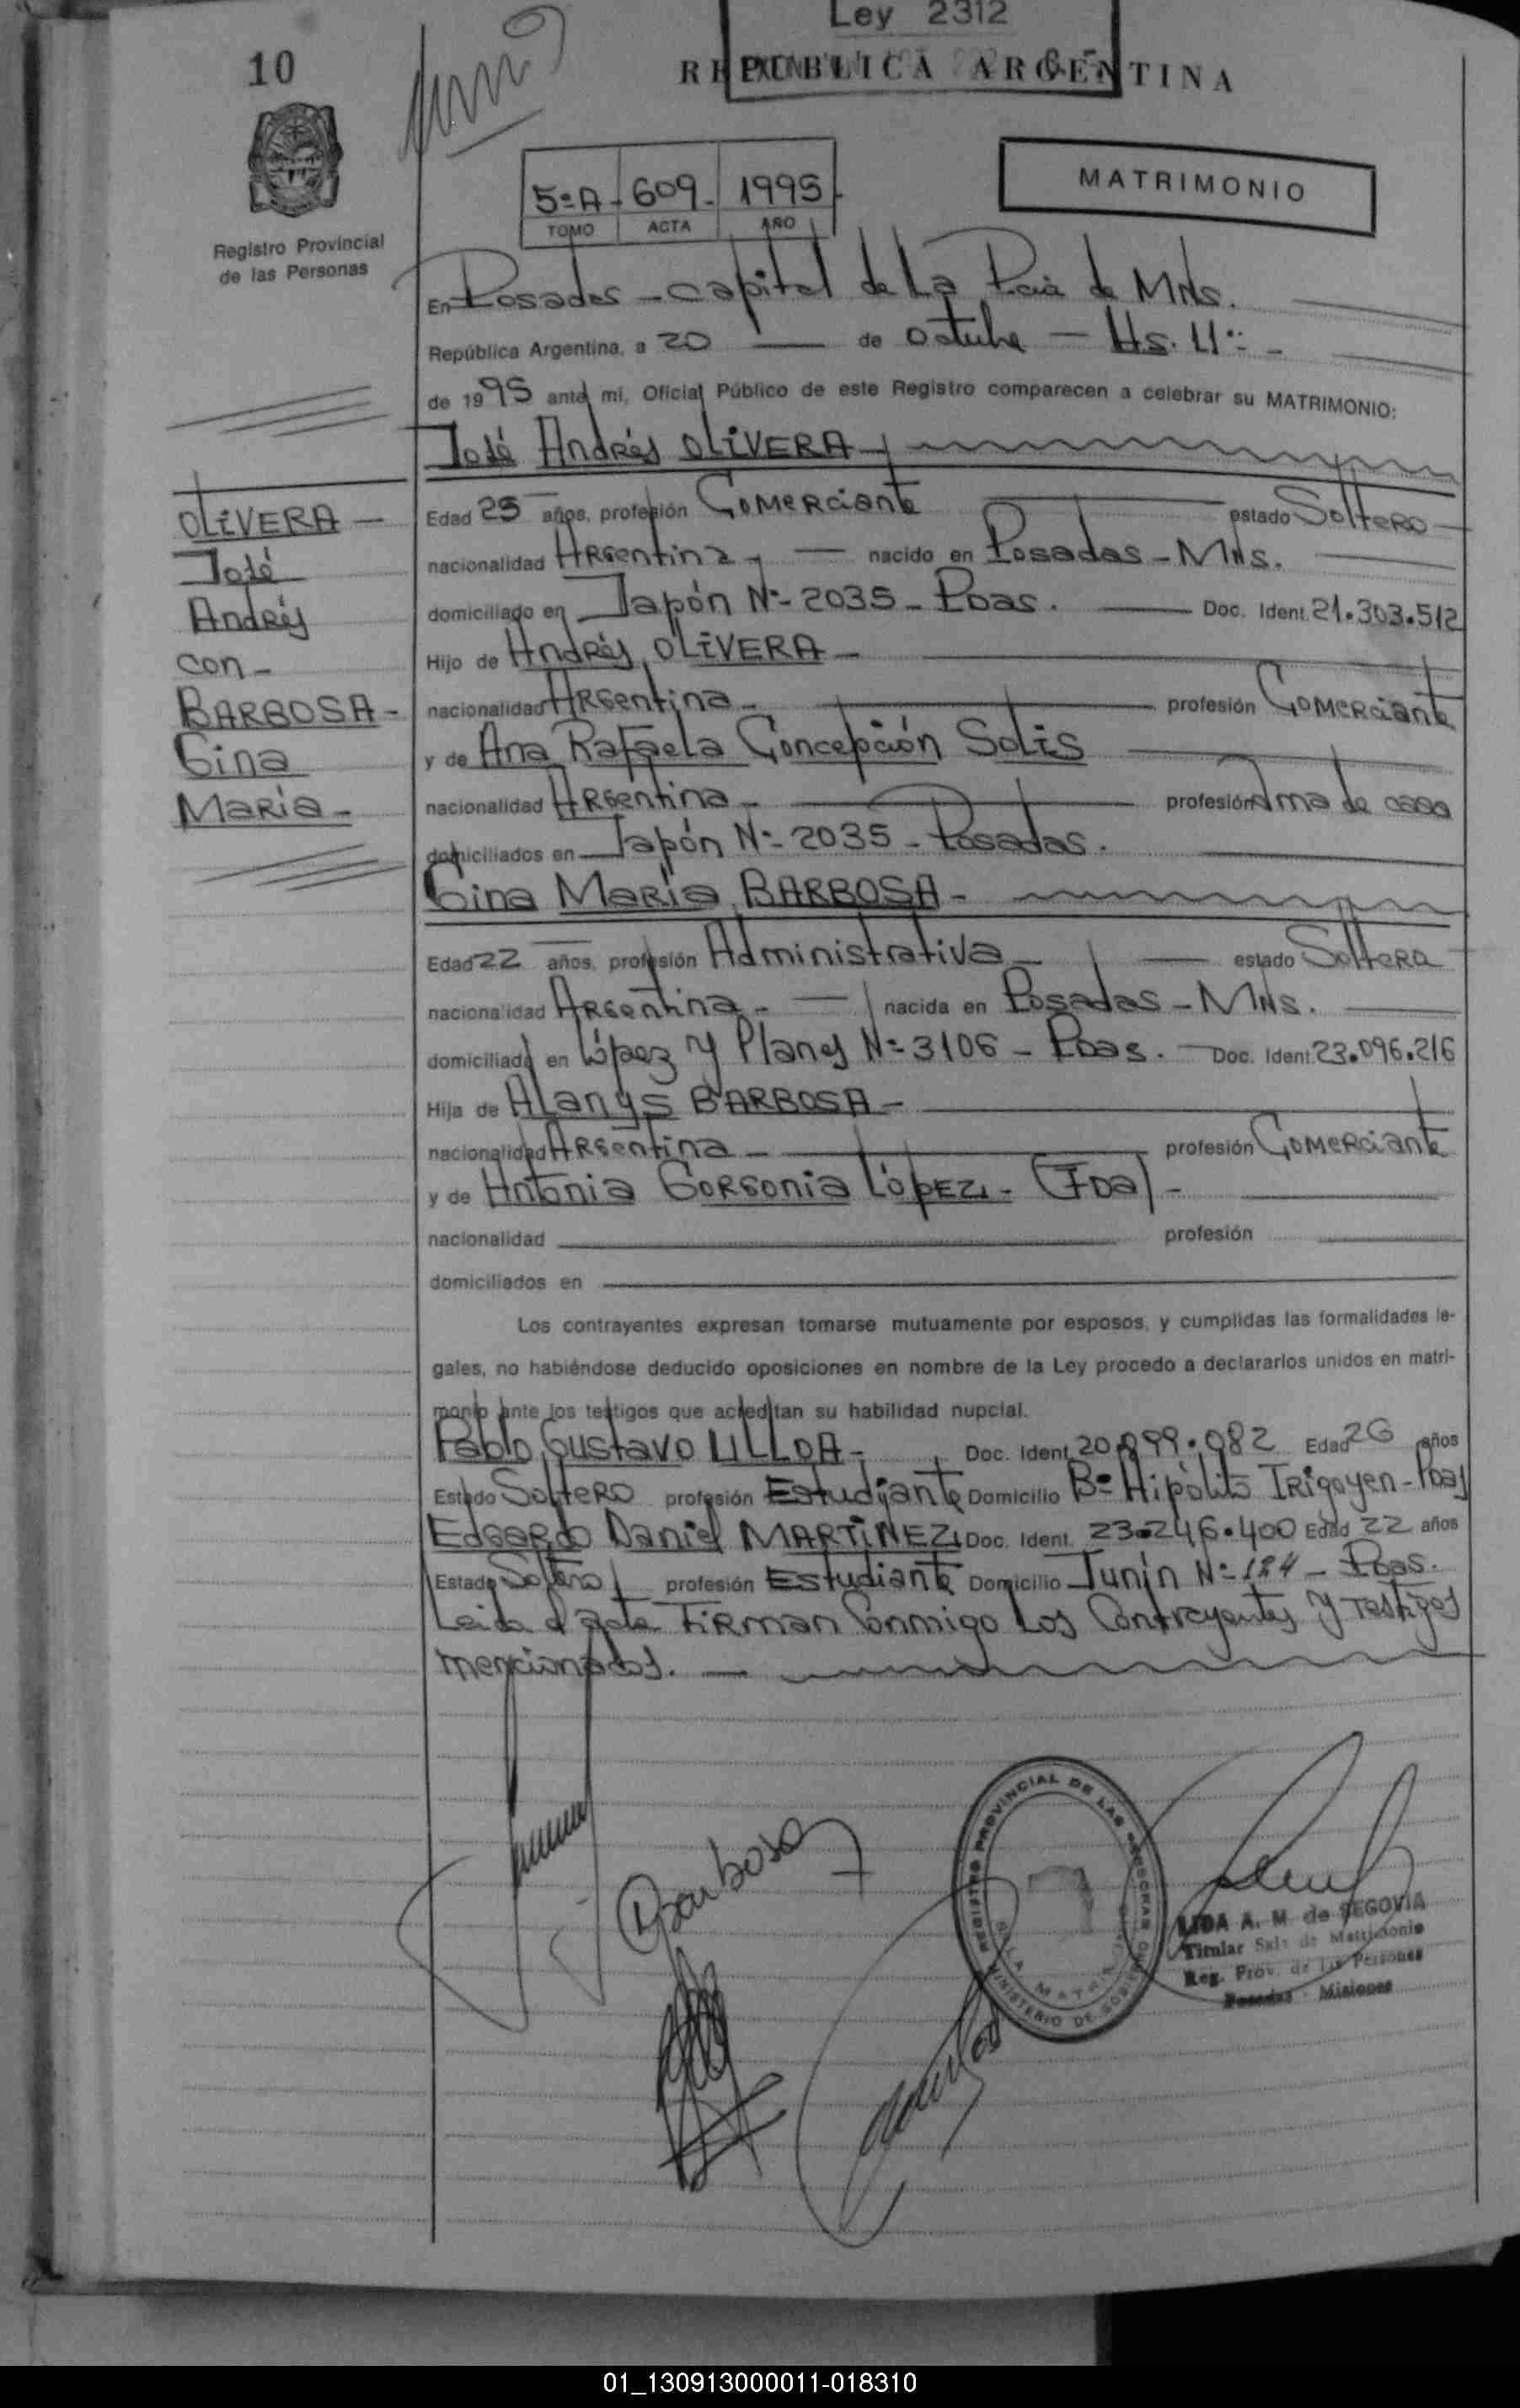 Ley 2312
10
REPUBLICA ARGENTINA
MATRIMONIO
5º A - 609 - 1995
TOMO ACTA AÑO
Registro Provincial
de las Personas
En Posadas - Capital de La Pcia de Mns.
República Argentina, a 20 de octubre - Hs. 11:-
de 1995 ante mí, Oficial Público de este Registro comparecen a celebrar su MATRIMONIO:
José Andrés OLIVERA
OLIVERA -
José
Andrés
con -
BARBOSA -
Gina
María -
Edad 25 años, profesión Comerciante estado Soltero
nacionalidad Argentina - nacido en Posadas - Mns.
domiciliado en Japón Nº- 2035 - Pdas. Doc. Ident. 21.303.512
Hijo de Andrés OLIVERA -
nacionalidad Argentina - profesión Comerciante
y de Ana Rafaela Concepción Solis
nacionalidad Argentina - profesión Ama de casa
domiciliados en Japón Nº- 2035 - Posadas.
Gina María BARBOSA -
Edad 22 años, profesión Administrativa - estado Soltera
nacionalidad Argentina - nacida en Posadas - Mns.
domiciliada en López y Planes Nº= 3106 - Pdas. Doc. Ident. 23.096.216
Hija de Alanys BARBOSA -
nacionalidad Argentina - profesión Comerciante
y de Antonia Gorgonia López - (Fda) -
nacionalidad profesión
domiciliados en
Los contrayentes expresan tomarse mutuamente por esposos, y cumplidas las formalidades le-
gales, no habiéndose deducido oposiciones en nombre de la Ley procedo a declararlos unidos en matri-
monio ante los testigos que acreditan su habilidad nupcial.
Pablo Gustavo ULLOA - Doc. Ident. 20.899.082 Edad 26 años
Estado Soltero profesión Estudiante Domicilio Bº Hipólito Irigoyen - Pdas
Edgardo Daniel MARTINEZ Doc. Ident. 23.246.400 Edad 22 años
Estado Soltero profesión Estudiante Domicilio Junín Nº= 184 - Pdas.
Leida el acta Firman Conmigo Los Contrayentes y Testigos
mencionados. -
Barbosa
REGISTRO PROVINCIAL DE LAS PERSONAS
MINISTERIO DE GOBIERNO
LIDA A. M. de SEGOVIA
Titular Sala de Matrimonio
Reg. Prov. de las Personas
Posadas - Misiones
01_130913000011-018310